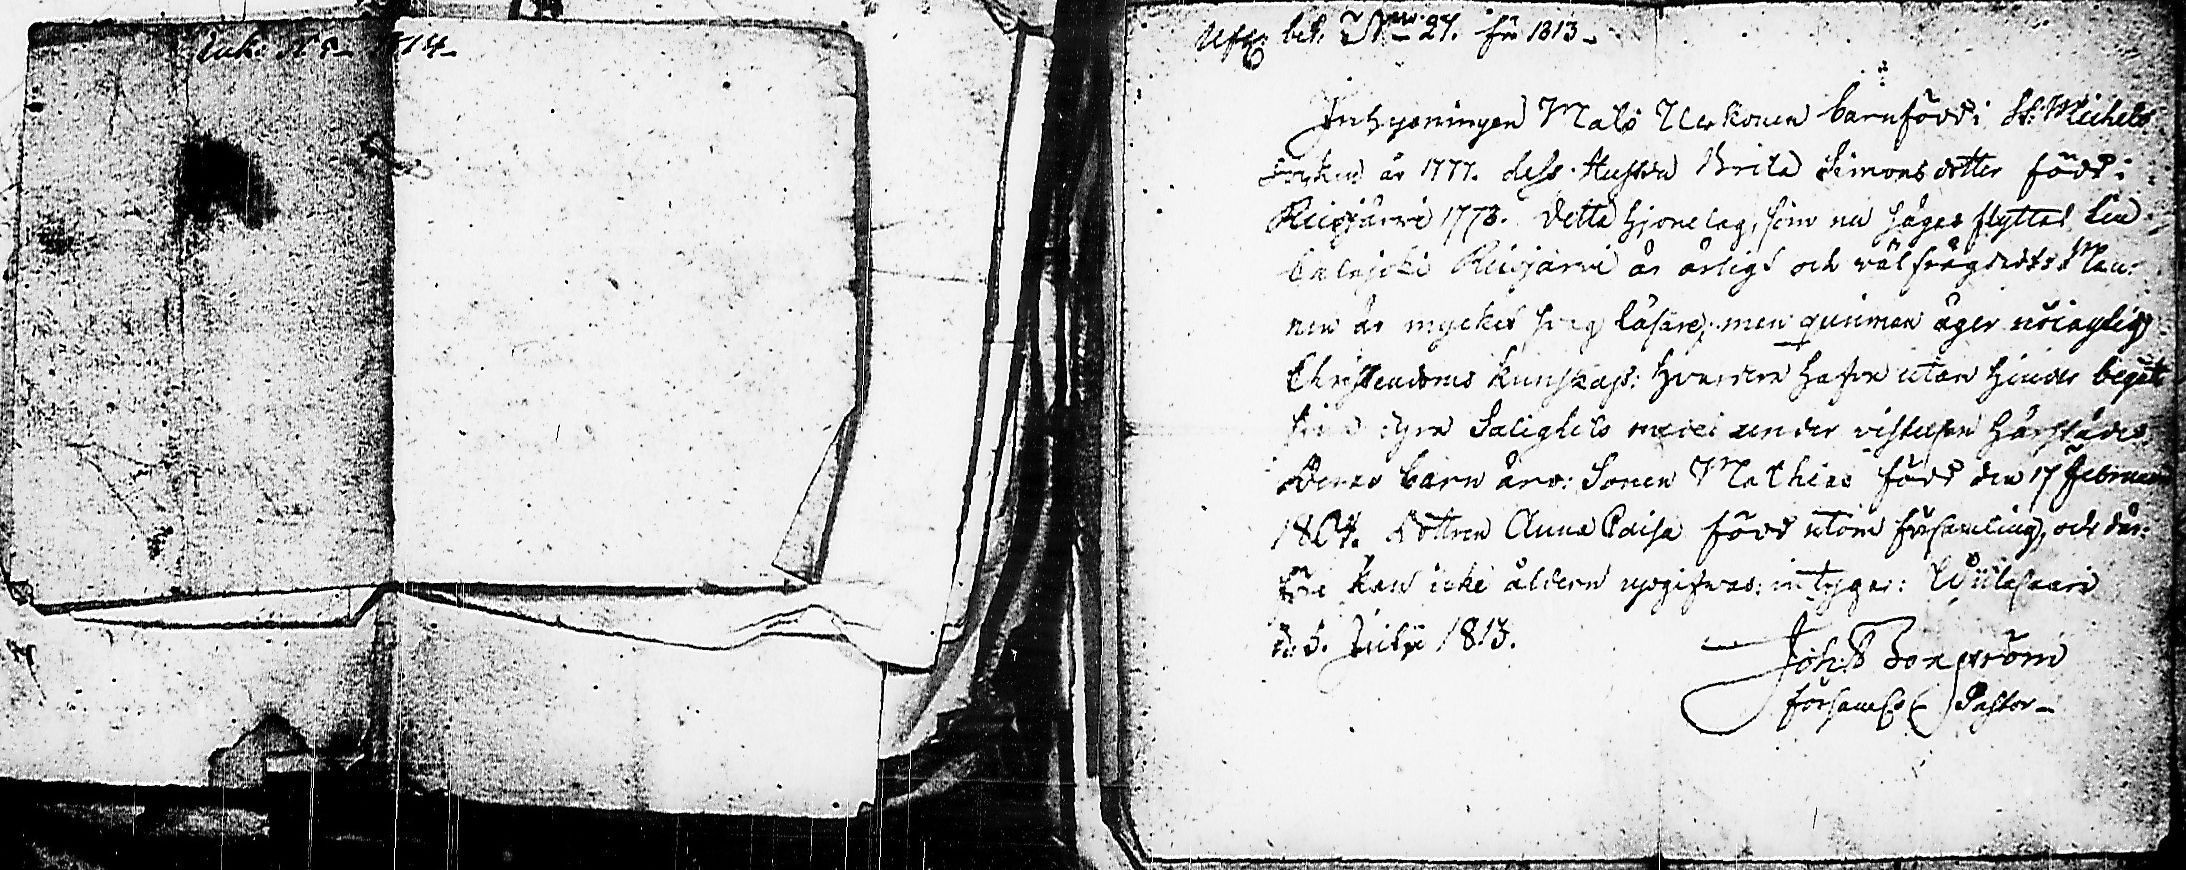 Ink: N 5 1814
Uftg bet. N 27. för 1813
Inhysningen Mats Uerkonen barnfödd i St: Michels
Sockn år 1777. dess Hustru Brita Simonsdotter född i
Reisjärwi 1773. Detta hjonelag, som nu säges flyttat til
Calajoki Reisjärwi är ärligt och wälfrägdadt: Man-
nen är mycket swag läsare; men quinnan äger nöiagelig
Christendoms kunskap: hwardera hafwa utan hinder begåt
sina dyra Salighets medel under wistelsen härstädes.
Deras barn äro: Sonen Mathias född den 17 Februarii
1804. Dottren Anna Caisa född utom församling, och där-
före kan icke åldern upgifwas; intygar: Wiitasaari
d: 5. Julii 1813.
Joh:
församls Pastor